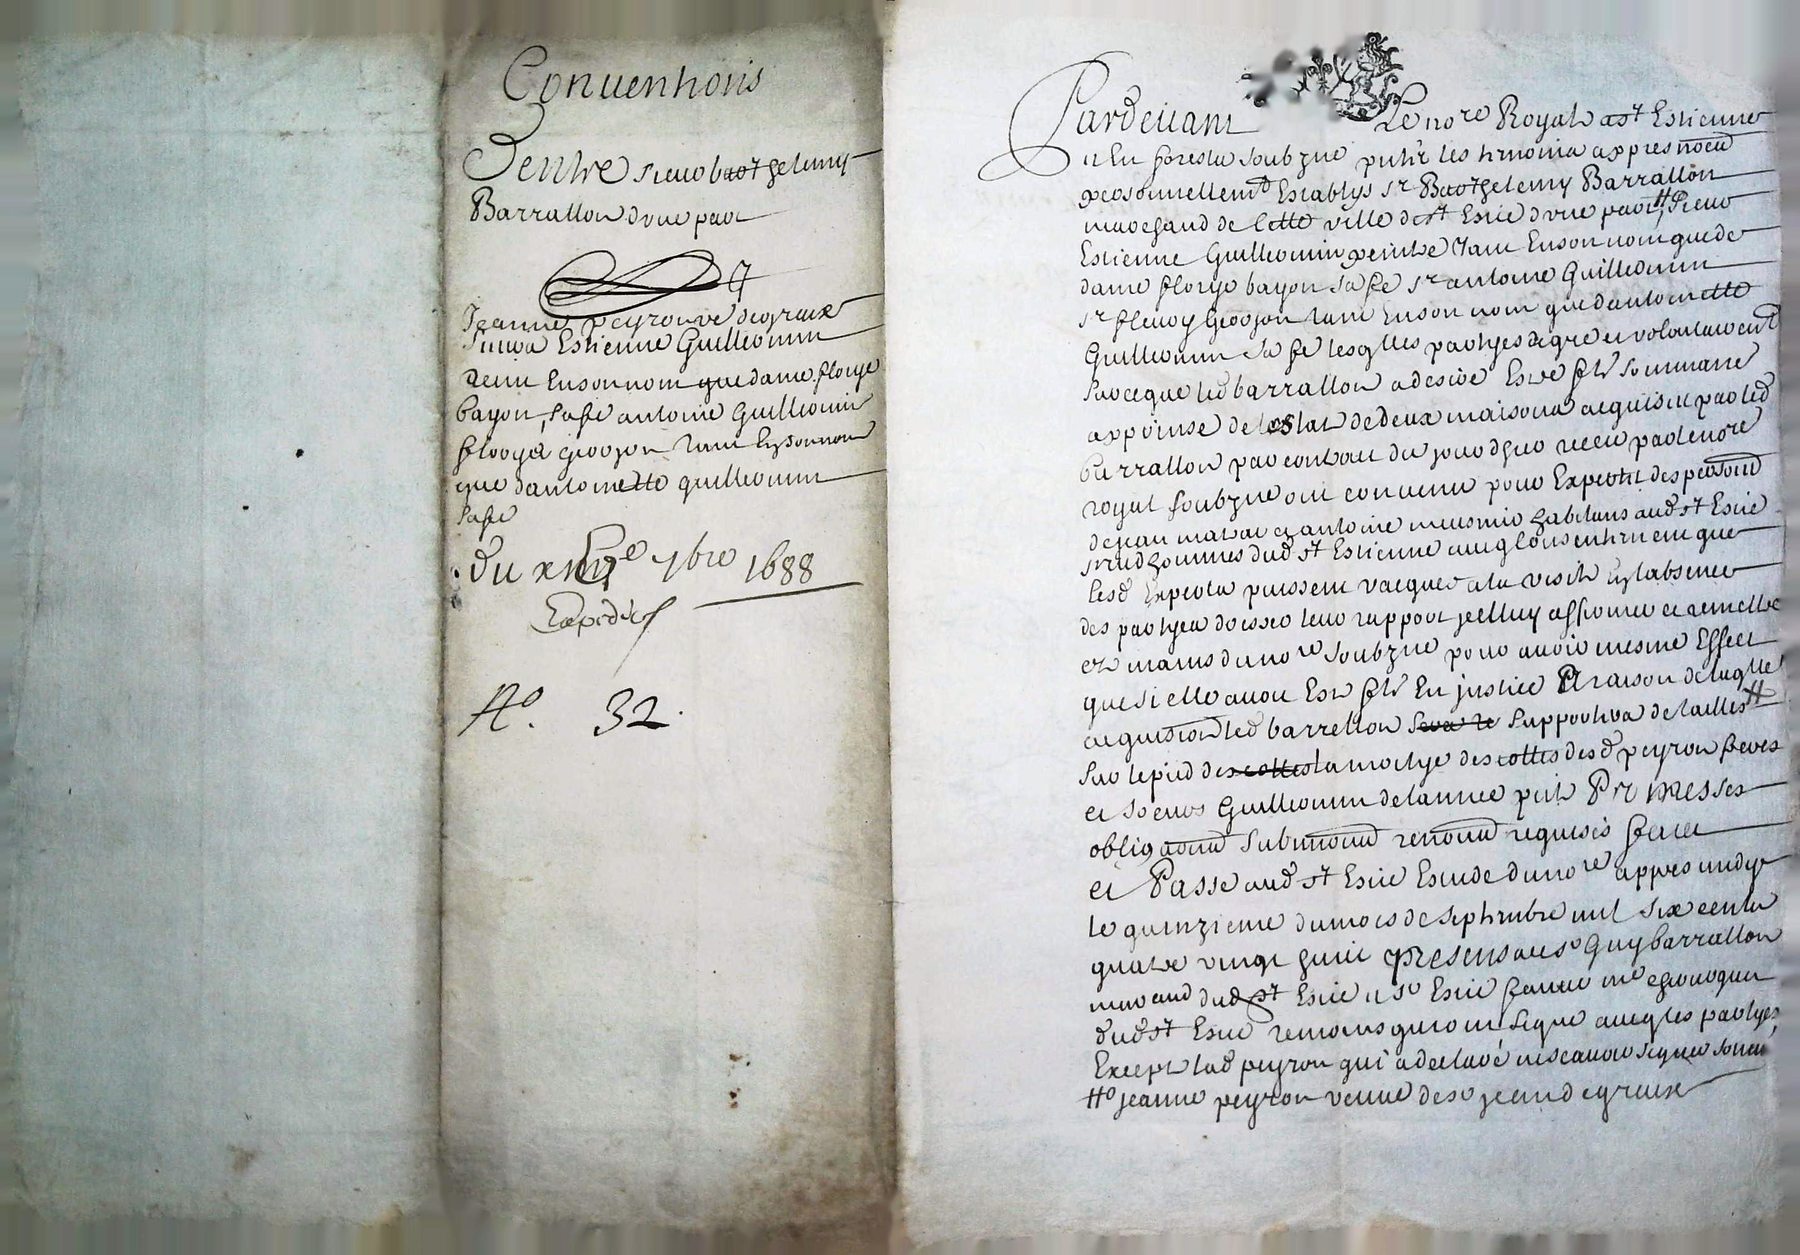 Conventions
D'entre sieur barthelemy
Barrallon d'une part
Jeanne peyron ve degreux
sieurs Estienne Guilleomin
tant En son nom que dame florye
bayon, sa fe antoine Guilleomin
fleury grozon tant En son nom
que d'antoinette guilleomin
sa fe
du xve 7bre 1688
Expedié
No. 32.
Pardevant Le nore Royal a st Estienne
En forestz soubzne put les tesmoins appres nomes
personnellemt Establys sr Barthelemy Barrallon
marchand de Cette ville de st Estie d'une part, # sieur
Estienne Guilleomin peintre tant En son nom que de
dame florye bayon sa fe sr antoine Guilleomin
sr fleury grozon tant En son nom que d'antoinette
Guilleomin sa fe lesqlles partyes de gre et volontairemt
sur ce que led barrallon a desiré Estre ft sommaire
apprinse de lestat de deux maisons acquises par led
barrallon par contract du jourdhuy receu par le nore
royal soubzne ont convenu pour Expertz des personnes
de jean et antoine habitans aud st Estie
prudhommes dud st Estienne auxqls consentent que
lesd Expertz puissent vacquer a la visite En labsence
des partyes dresser leur rapport jcelluy affirmer et remettre
ez mains du nore soubzne pour avoir mesme Effect
que si elle avoit Esté fte En justice Et a raison de laqlle
acquision led barrallon supportera de tailles #
sur le pied de la moitye des cottes desd peyron freres
et soeurs Guilleomin de lannee pnt Promesses
obligaons submons renons requises faict
et Passé aud st Estie Estude du nore appres midy
le quinzieme du mois de septembre mil six cents
quatre vingt huict presens a ce sr Guy barrallon
marchand dud st Estie et sr Estie me
dud st Estie temoins qui ont signé avec les partyes
Except lad peyron qui a declaré ne scavoir signer
# jeanne peyron veuve de sr jean degreux